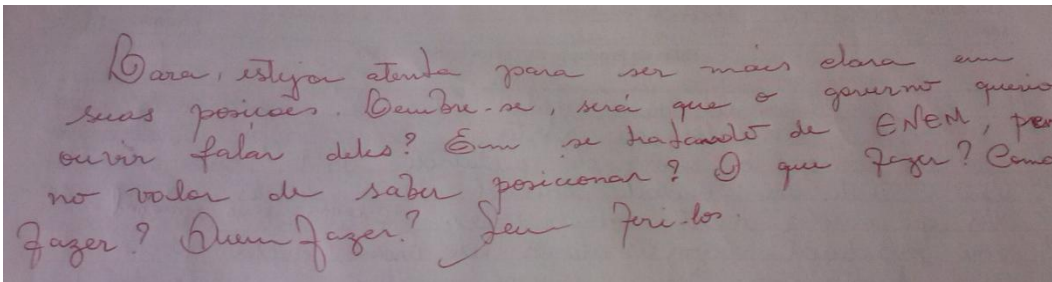 Lara, esteja atenta para ser mais clara em
suas posicoes. Lembre-se, será que o governo queria
ouvir falar deles? Em se tratando de ENEM, pen
no valor de saber posicionar? O que fazer? Como
fazer? Quem fazer? Sem feri-los.